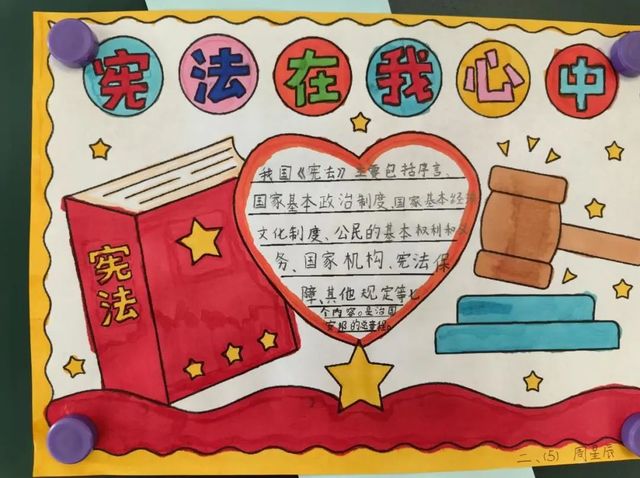 宪法在我心中
宪法
我国《宪法》主要包括序言、
国家基本政治制度、国家基本经济
文化制度、公民的基本权利和义
务、国家机构、宪法保
障、其他规定等七
个内容。是治国
安邦的总章程。
二、(5) 周星辰